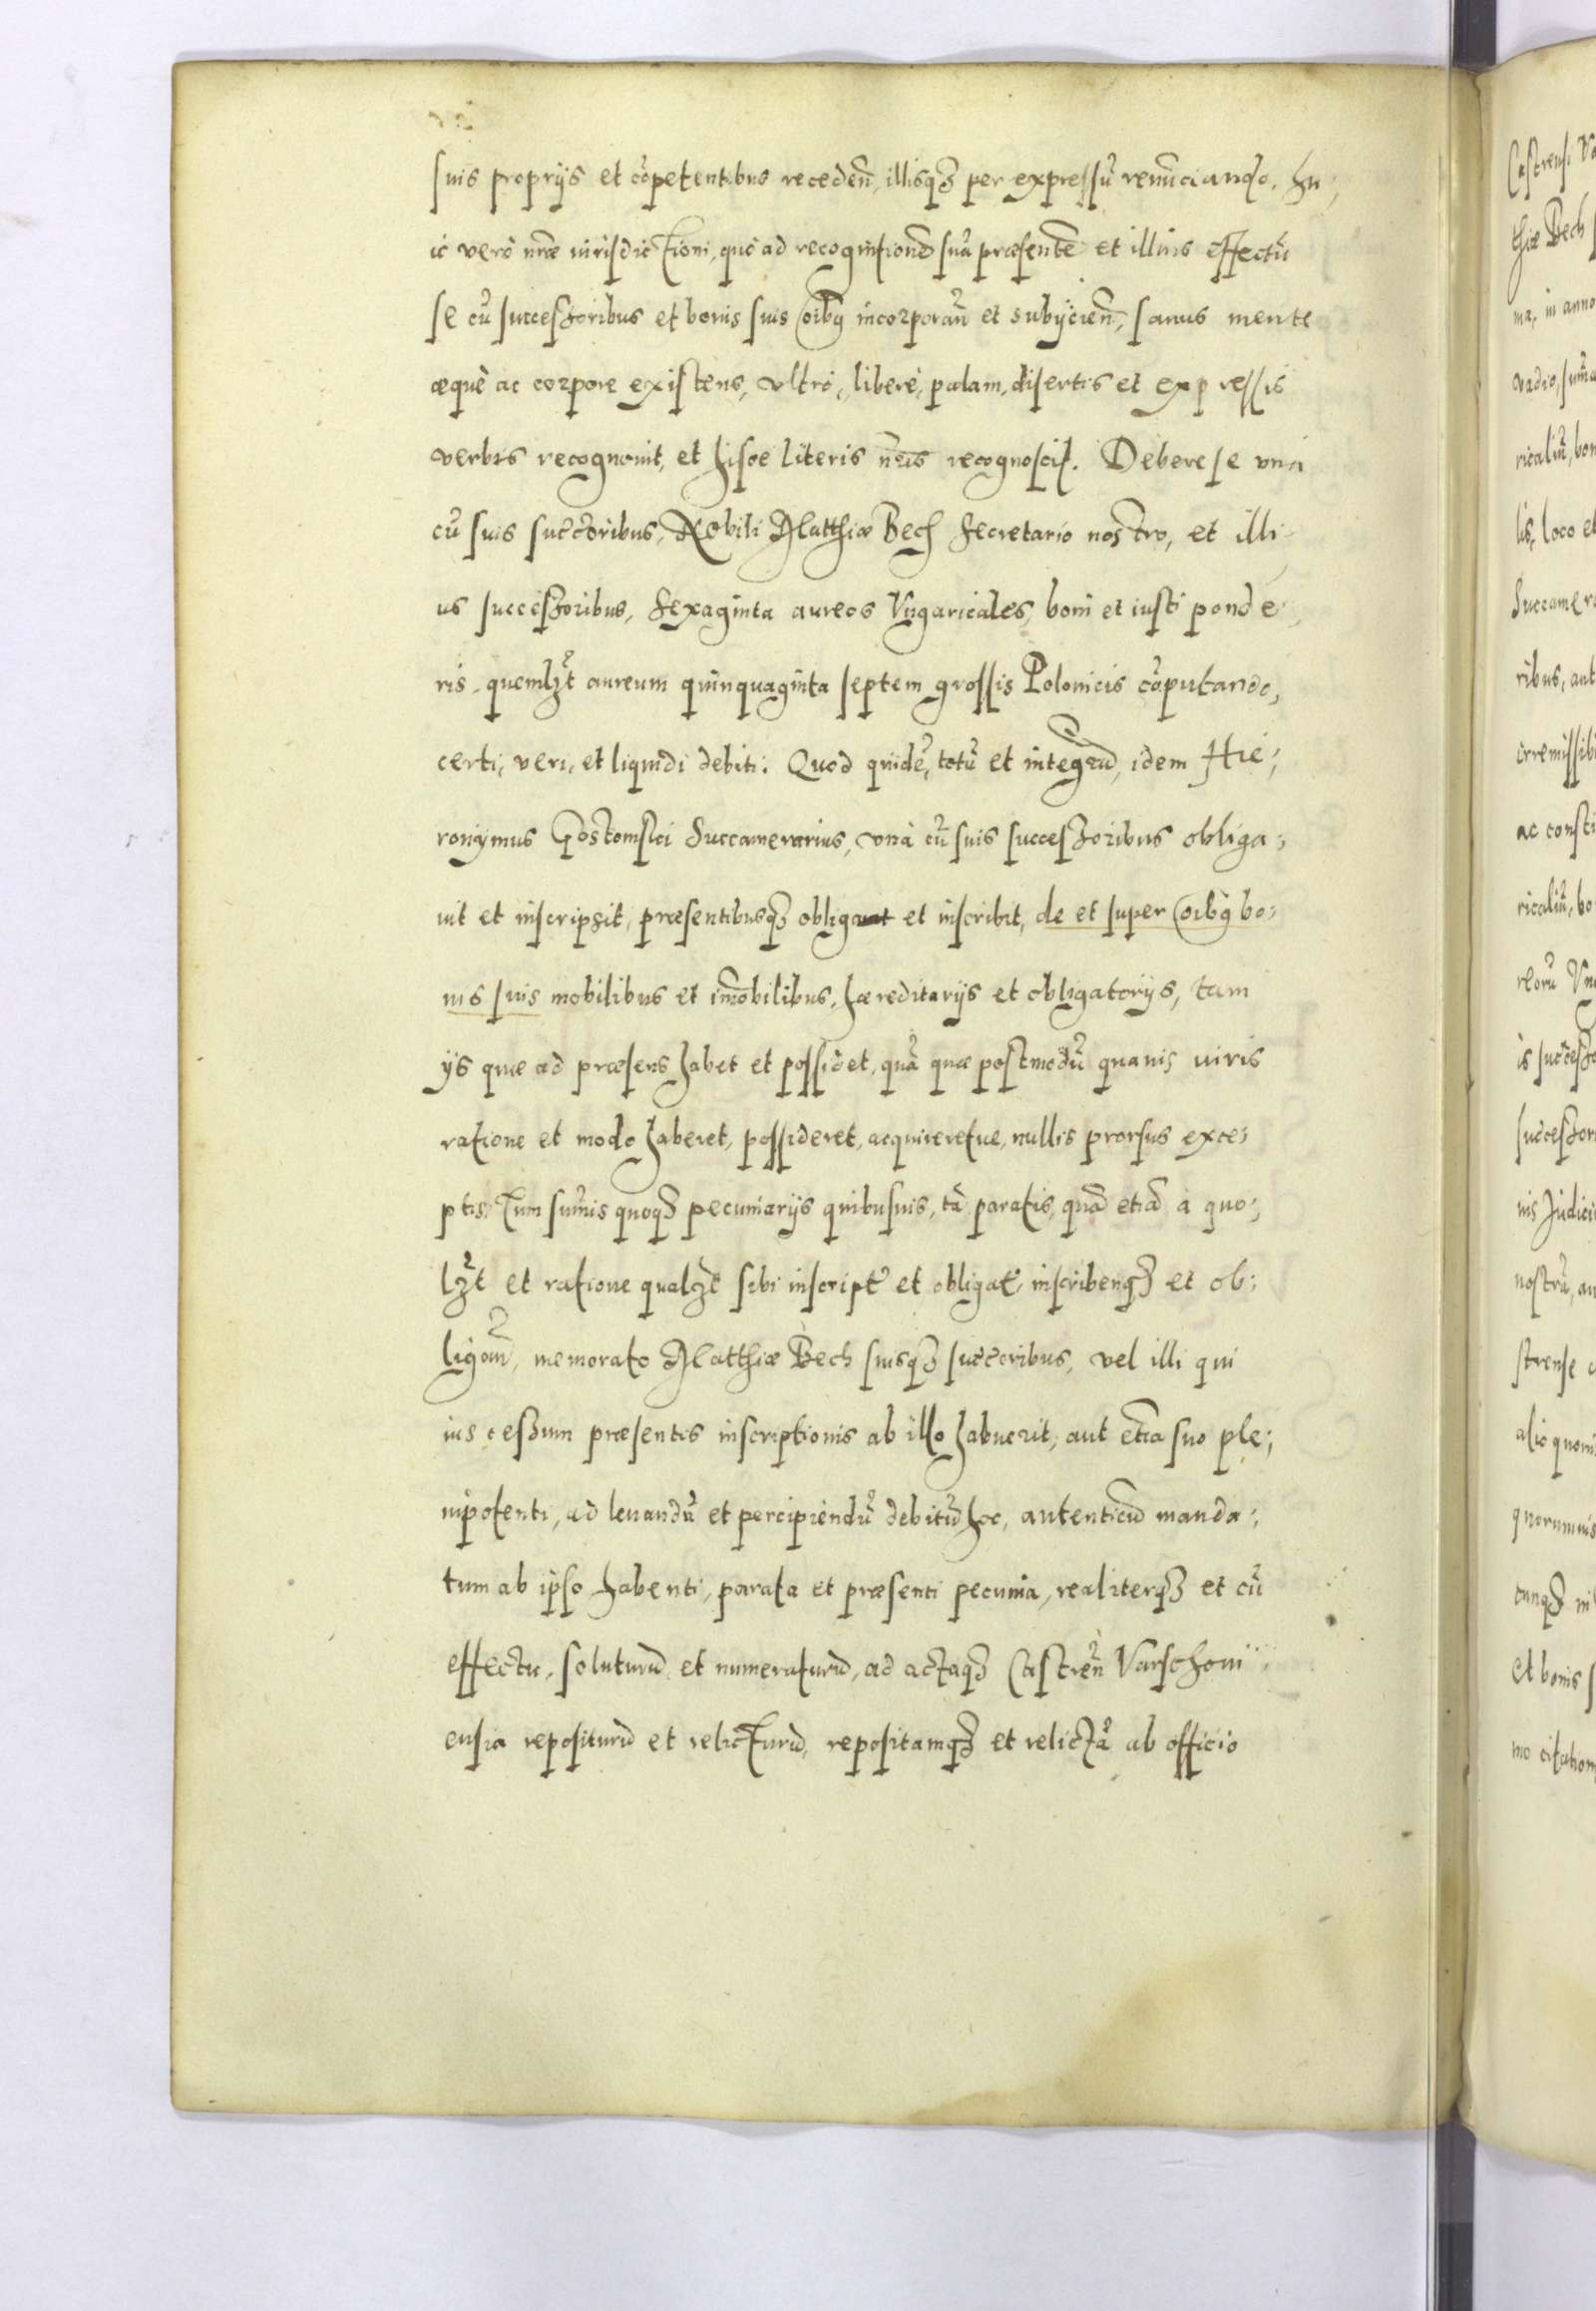 suis proprijs et cõpetentibus receden̄, illisq₃ per expressũ renũciando, hu;
ic verò nr̃æ iurisdictioni, quò ad recognitionẽ suã præsentẽ et illius effectũ
se cũ successoribus et bonis suis oĩbꝫ incorporan̄ et subijcien̄, sanus mente
æquè ac corpore existens, vltrò, liberè, palam, disertis et expressis
verbis recognouit, et hisce literis nr̃is recognoscit. Debere se vnà
cũ suis succ̃oribus, Nobili Matthiæ Bech Secretario nostro, et illi
us successoribus, Sexaginta aureos Vngaricales, boni et iusti ponde
ris, quemlꝫt aureum quinquaginta septem grossis Polonicis cõputando,
certi, veri, et liquidi debiti. Quod quidẽ, totũ et integrũ, idem Hie;
ronymus Gostomski Succamerarius, vnà cũ suis successoribus obliga;
uit et inscripsit, præsentibusq₃ obligat et inscribit, de et super oĩbꝫ bo;
nis suis mobilibus et imõbilibus, hæreditarijs et obligatorijs, tam
ijs quæ ad præsens habet et possidet, quã quæ postmodũ quauis iuris
ratione et modo haberet, possideret, acquireretue, nullis prorsus exce;
ptis, Tum sum̃is quoq₃ pecuniarijs quibusuis, tã paratis, quã etiã à quo;
lꝫt et ratione qualꝫt sibi inscript̃ et obligat̃, inscribenq₃ et ob;
ligan̄, memorato Matthiæ Bech suisq₃ succ̃oribus, vel illi qui
ius cessum præsentis inscriptionis ab illo habuerit, aut etiã suo ple;
nipotenti, ad leuandũ et percipiendũ debitũ hoc, autenticũ manda;
tum ab ipso habenti, parata et præsenti pecunia, realiterq₃ et cũ
effectu, soluturũ et numeraturũ, ad actaq₃ Castren̄ Varschoui
ensia repositurũ et relicturũ, repositamq₃ et relictã ab officio